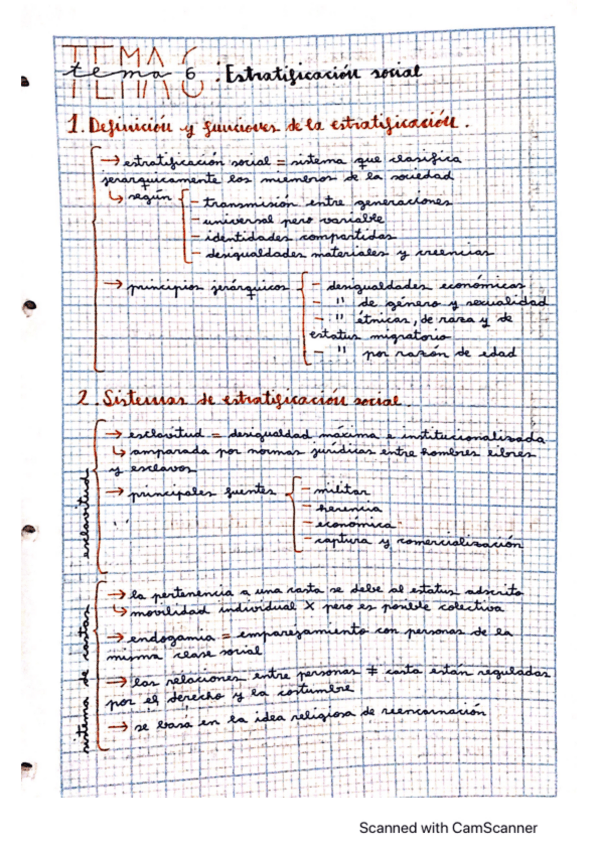 TEMA 6
tema 6 : Estratificación social
1. Definición y funciones de la estratificación.
→ estratificación social = sistema que clasifica
jerárquicamente los miembros de la sociedad
↳ según
- transmisión entre generaciones
- universal pero variable
- identidades compartidas
- desigualdades materiales y creencias
→ principios jerárquicos
- desigualdades económicas
- " de género y sexualidad
- " étnicas, de raza y de
estatus migratorio
- " por razón de edad
2. Sistemas de estratificación social.
esclavitud
→ esclavitud = desigualdad máxima e institucionalizada
↳ amparada por normas jurídicas entre hombres libres
y esclavos
→ principales fuentes
- militar
- herencia
- económica
- captura y comercialización
sistema de castas
→ la pertenencia a una casta se debe al estatus adscrito
↳ movilidad individual X pero es posible colectiva
→ endogamia = emparejamiento con personas de la
misma clase social
→ las relaciones entre personas ≠ casta están reguladas
por el derecho y la costumbre
→ se basa en la idea religiosa de reencarnación
Scanned with CamScanner